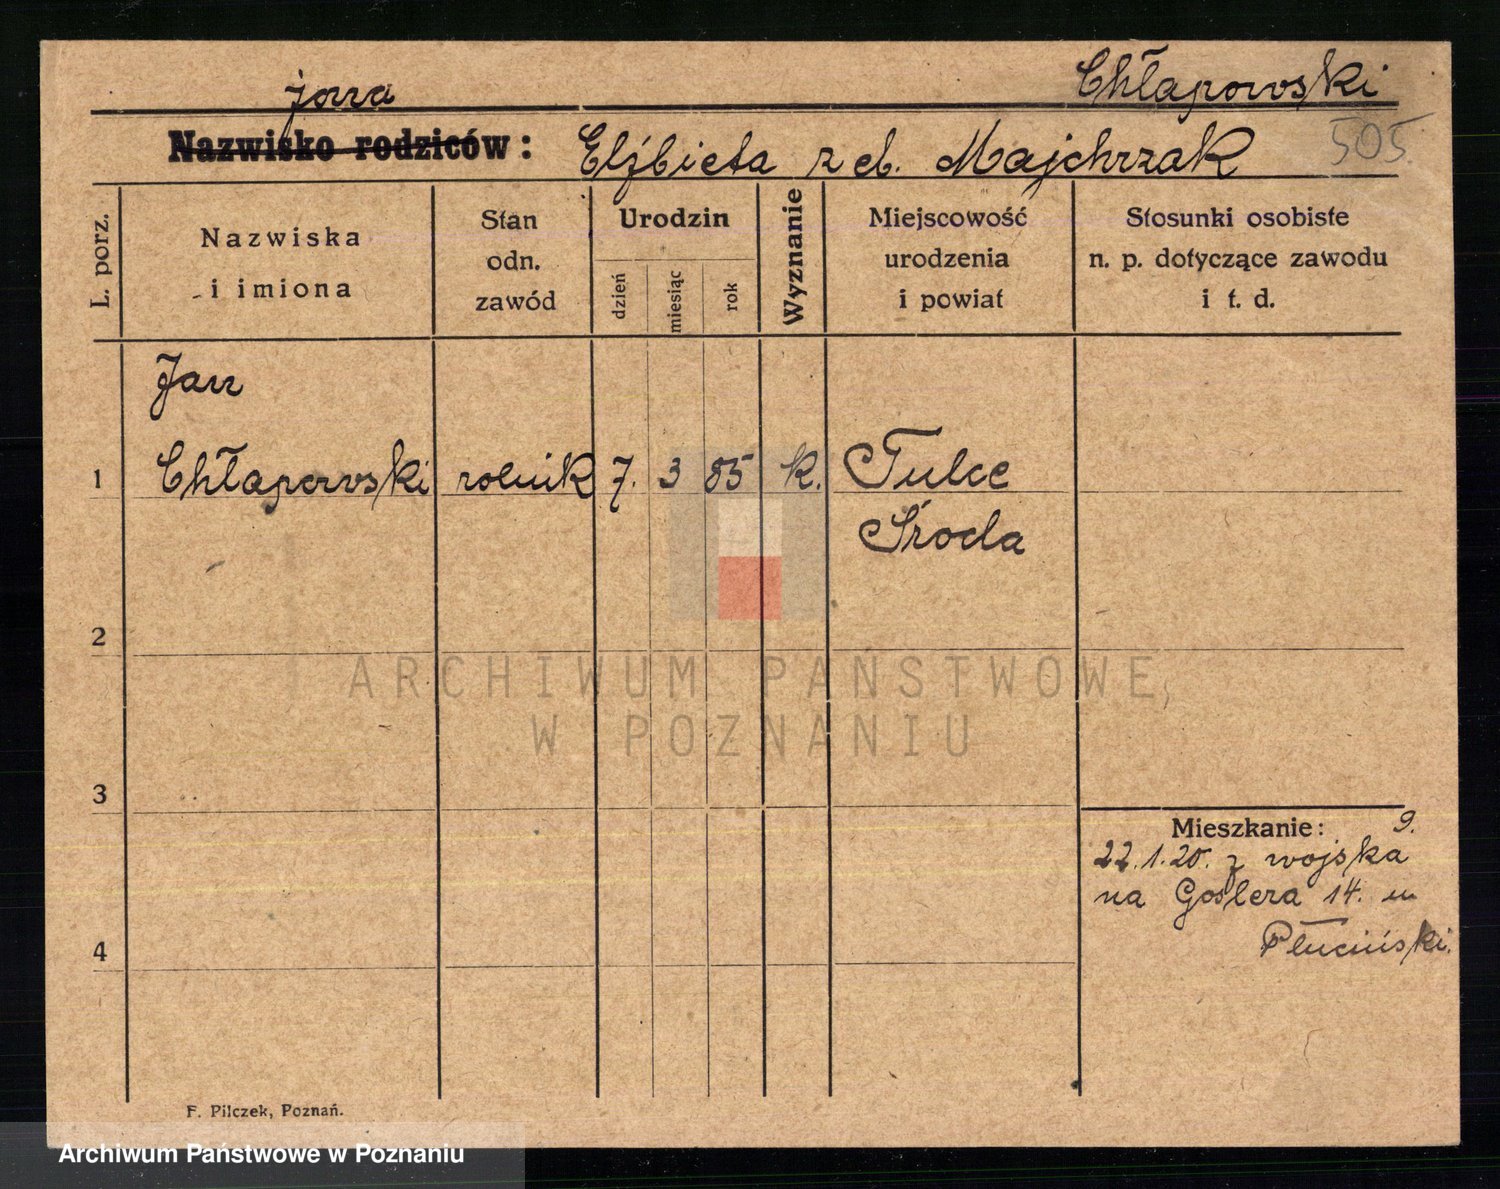 żona Chłapowski
Nazwisko rodziców: Elżbieta z d. Majchrzak 505.
L. porz.
Nazwiska
i imiona
Stan
odn.
zawód
Urodzin
dzień
miesiąc
rok
Wyznanie
Miejscowość
urodzenia
i powiat
Stosunki osobiste
n. p. dotyczące zawodu
i t. d.
Jan
1 Chłapowski rolnik 7. 3 85 k. Tulce
Środa
2
3
4
Mieszkanie: 9.
22.1.20. z wojska
na Goslera 14. m
Pluciński.
F. Pilczek, Poznań.
ARCHIWUM PAŃSTWOWE
W POZNANIU
Archiwum Państwowe w Poznaniu